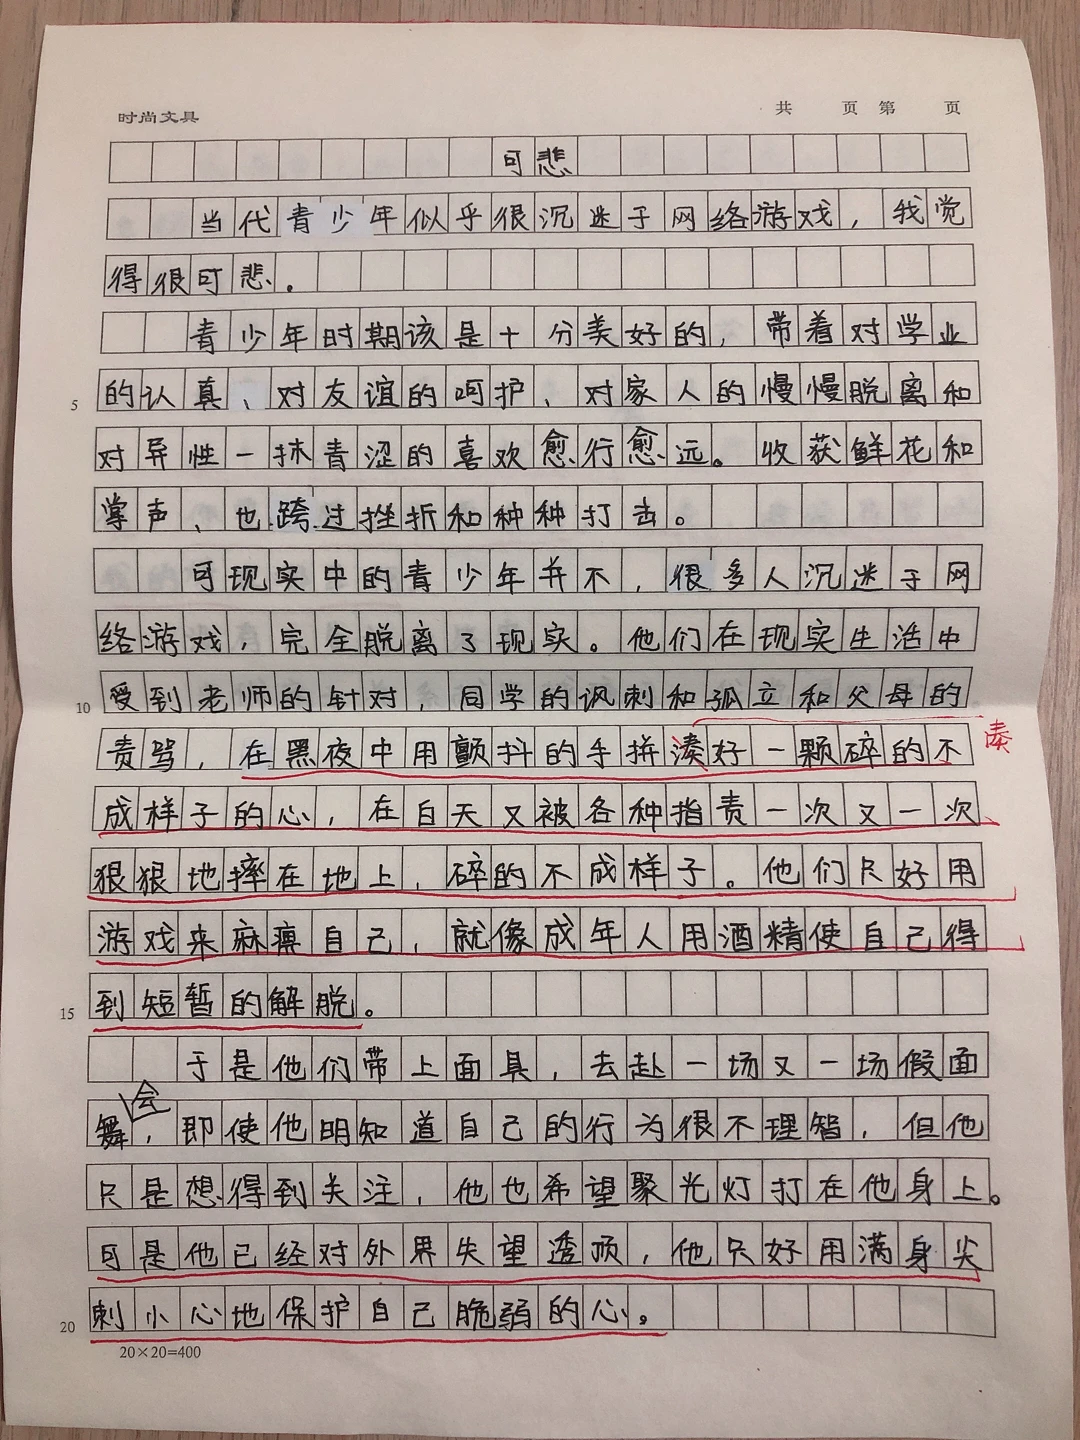 时尚文具 共 页 第 页
可悲
当代青少年似乎很沉迷于网络游戏，我觉
得很可悲。
青少年时期该是十分美好的，带着对学业
5 的认真、对友谊的呵护、对家人的慢慢脱离和
对异性一抹青涩的喜欢愈行愈远。收获鲜花和
掌声、也跨过挫折和种种打击。
可现实中的青少年并不，很多人沉迷于网
络游戏，完全脱离了现实。他们在现实生活中
10 受到老师的针对，同学的讽刺和孤立和父母的
责骂，在黑夜中用颤抖的手拼凑好一颗碎的不 凑
成样子的心，在白天又被各种指责一次又一次
狠狠地摔在地上，碎的不成样子。他们只好用
游戏来麻痹自己，就像成年人用酒精使自己得
15 到短暂的解脱。
于是他们带上面具，去赴一场又一场假面
舞会，即使他明知道自己的行为很不理智，但他
只是想得到关注，他也希望聚光灯打在他身上。
可是他已经对外界失望透顶，他只好用满身尖
20 刺小心地保护自己脆弱的心。
20×20=400